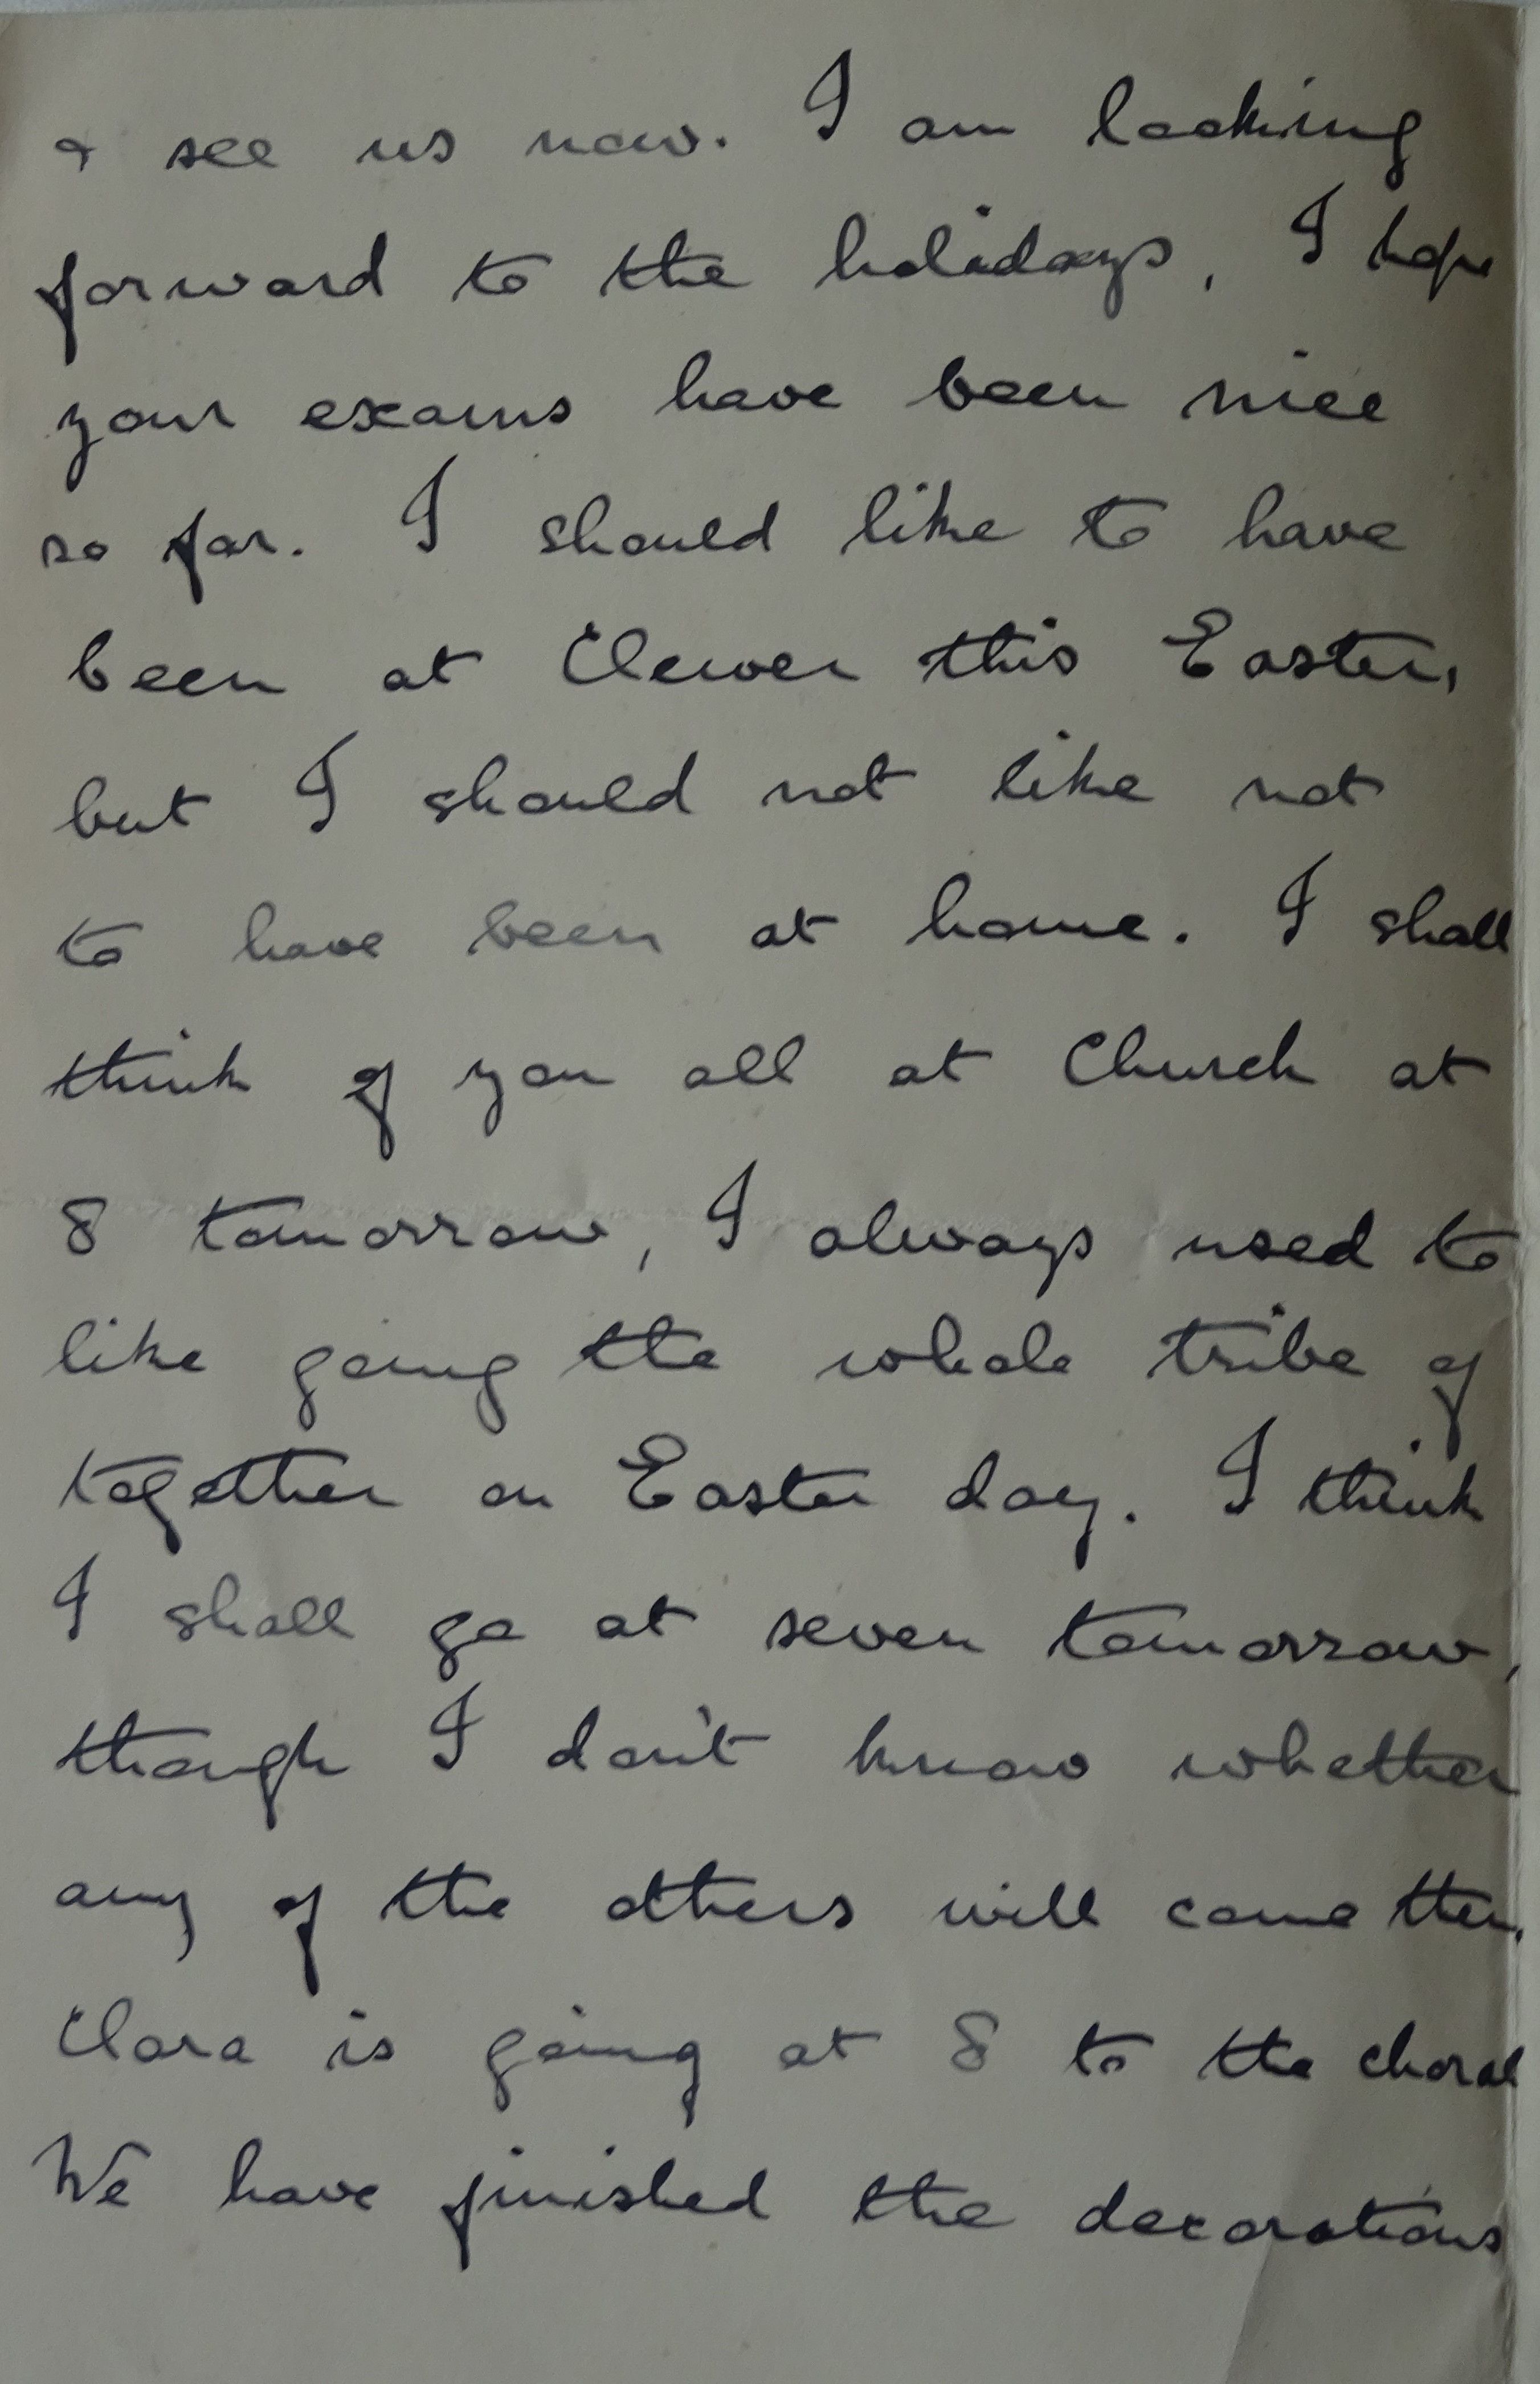 & see us now. I am looking
forward to the holidays, I hope
your exams have been nice
so far. I should like to have
been at Clewer this Easter,
but I should not like not
to have been at home. I shall
think of you all at Church at
8 tomorrow, I always used to
like going the whole tribe of
together on Easter day. I think
I shall go at seven tomorrow,
though I don't know whether
any of the others will come then.
Clara is going at 8 to the choral
We have finished the decorations